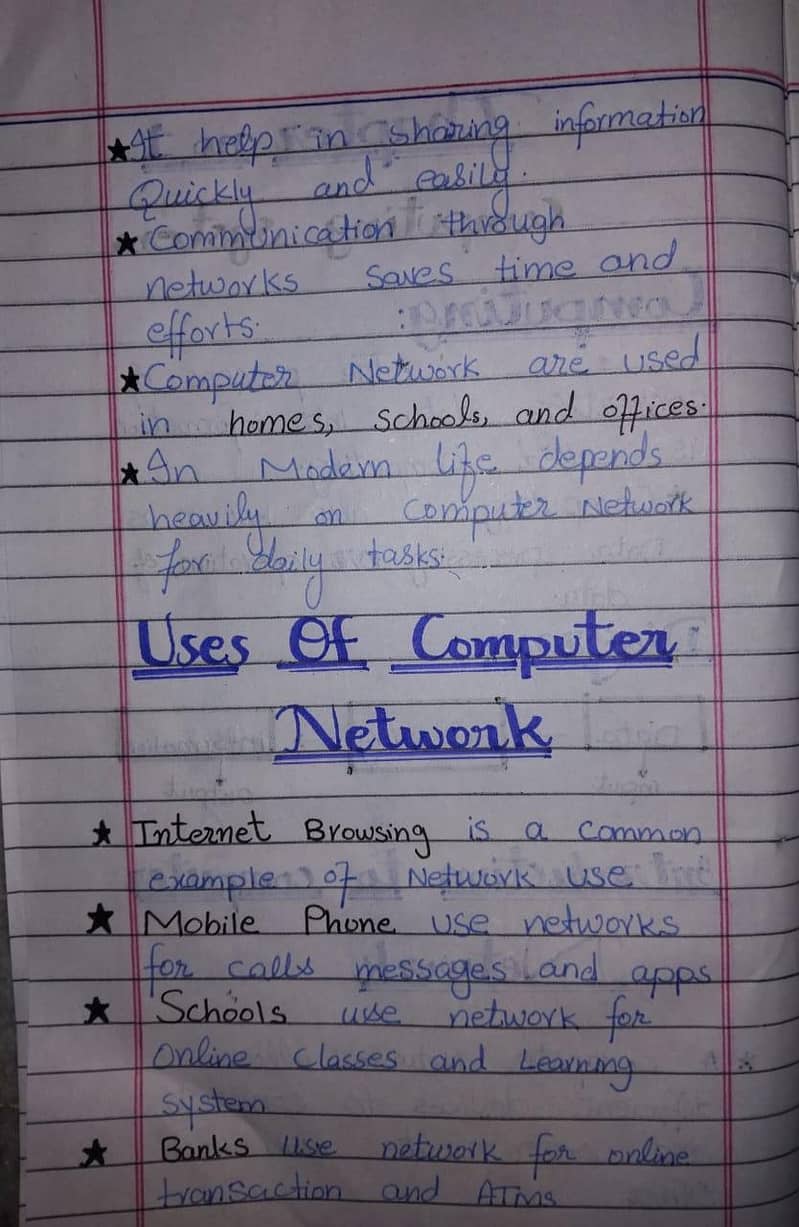 ★ It help in sharing information
Quickly and easily.
★ Communication through
networks saves time and
efforts.
★ Computer Network are used
in homes, schools, and offices.
★ In Modern life depends
heavily on computer Network
for daily tasks.
Uses Of Computer
Network
★ Internet Browsing is a common
example of Network use
★ Mobile Phone use networks
for calls messages and apps
★ Schools use network for
Online Classes and Learning
system
★ Banks use network for online
transaction and ATMs